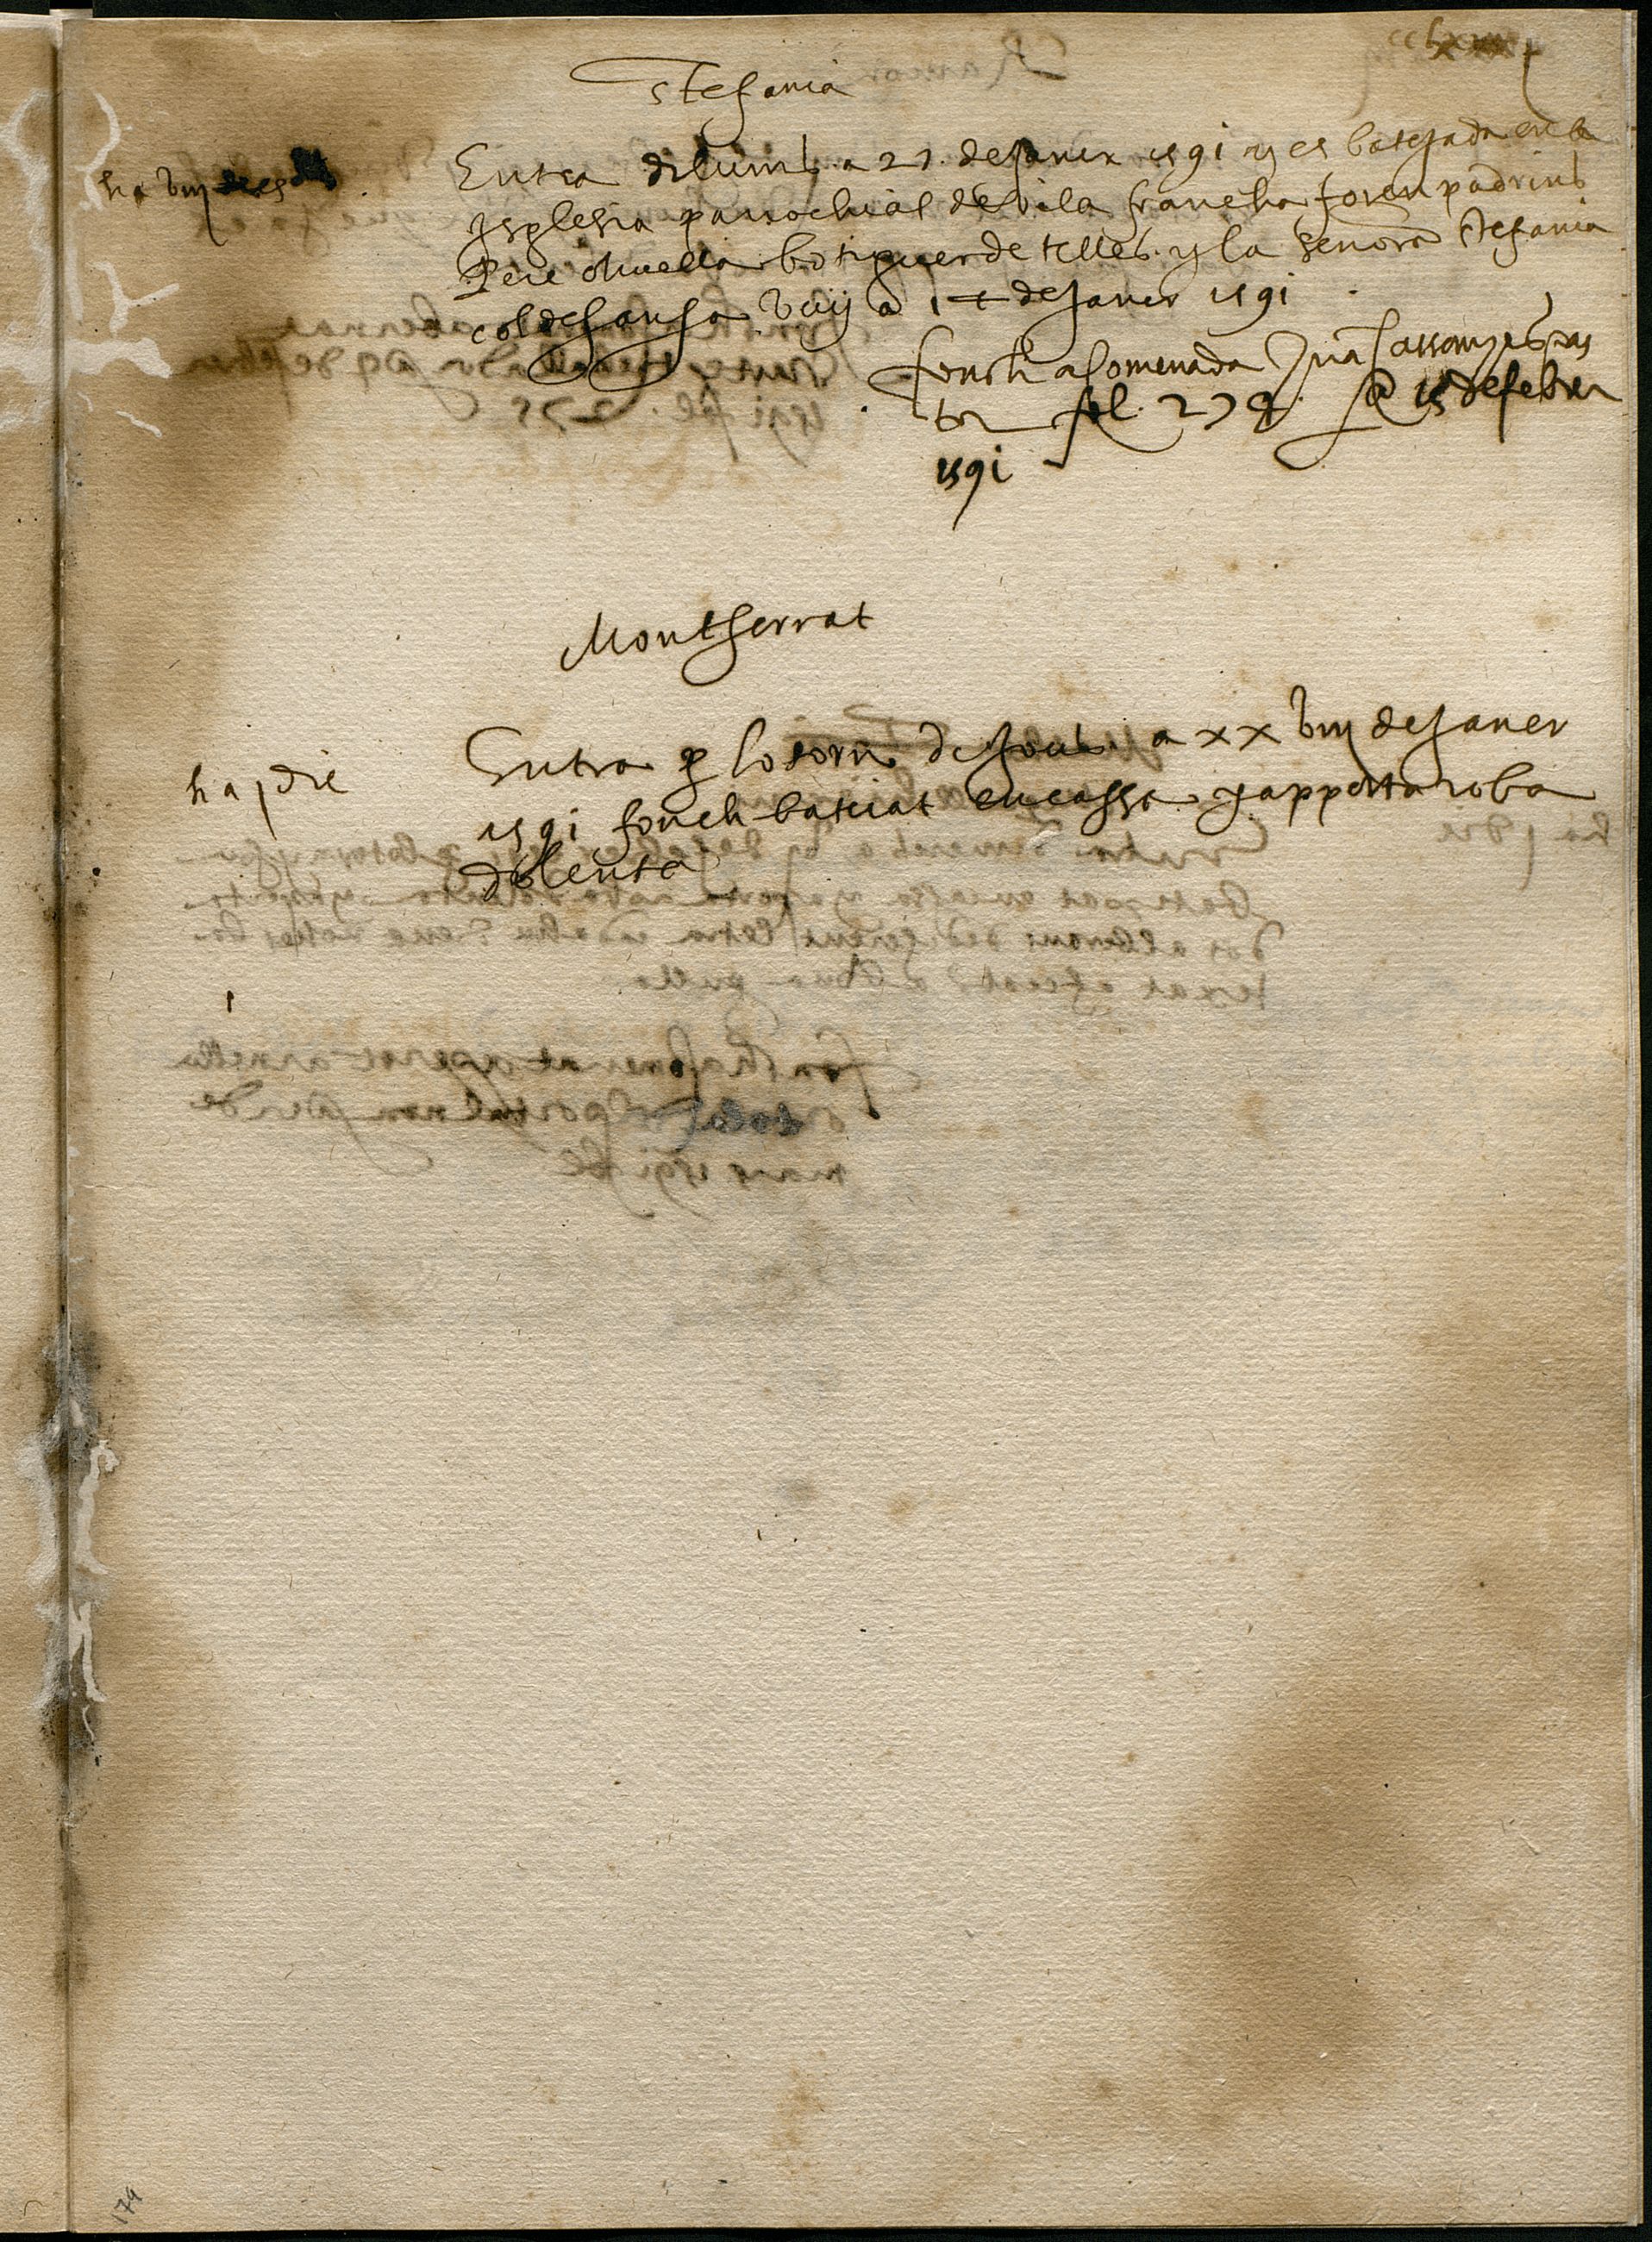 Stefania
ha viij
Entra dilluns a 21 de Janer 1591 y es batejada en la
Isglesia parrochial de vila francha foren padrins
Pere olivella botiguer de telles y la senora stefania
coldesansa vuij a 14 de Janer 1591
fonch acomenada
tor fol. 279 @ 15 de febrer
1591
Montserrat
ha j die
Entra p lo torn de fora a xx viij de Janer
1591 fonch batiat en cassa y apporta roba
dolenta
174